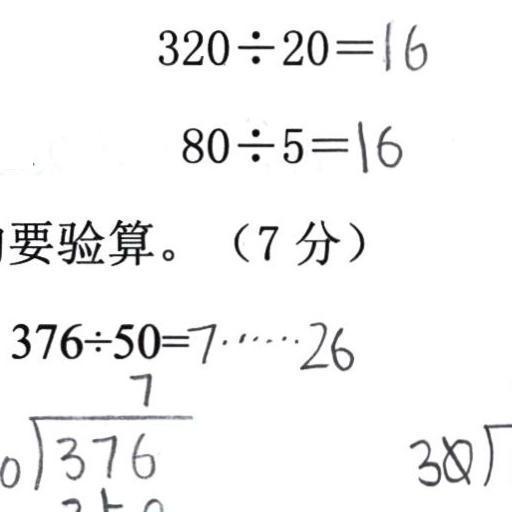 320÷20=16
80÷5=16
要验算。（7 分）
376÷50=7······26
7
0)376
350
30)